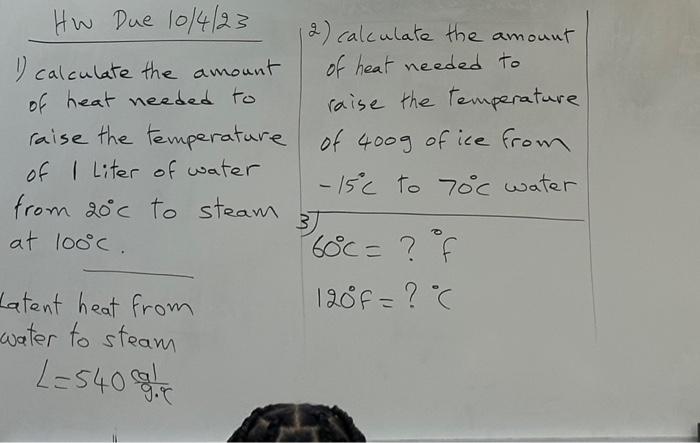 Hw Due 10/4/23
1) calculate the amount
of heat needed to
raise the temperature
of 1 Liter of water
from 20°c to steam
at 100°c.
Latent heat from
water to steam
L=540 cal/g.°c
2) calculate the amount
of heat needed to
raise the temperature
of 400g of ice from
-15°c to 70°c water
3)
60°c = ? °f
120°f = ? °c